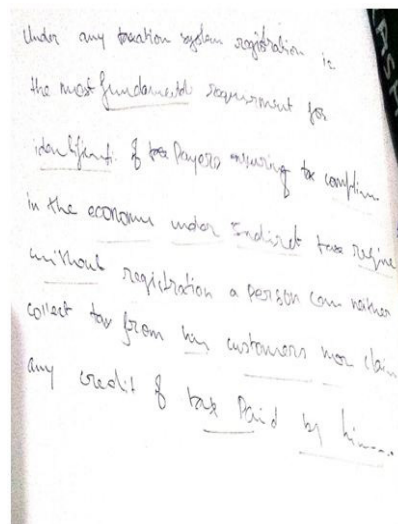 Under any taxation system registration is
the most fundamental requirment for
identificati. of tax Payers ensuring tax complian
in the economy under Indirect tax regime
without registration a person can neither
collect tax from his customers nor claim
any credit of tax Paid by him....